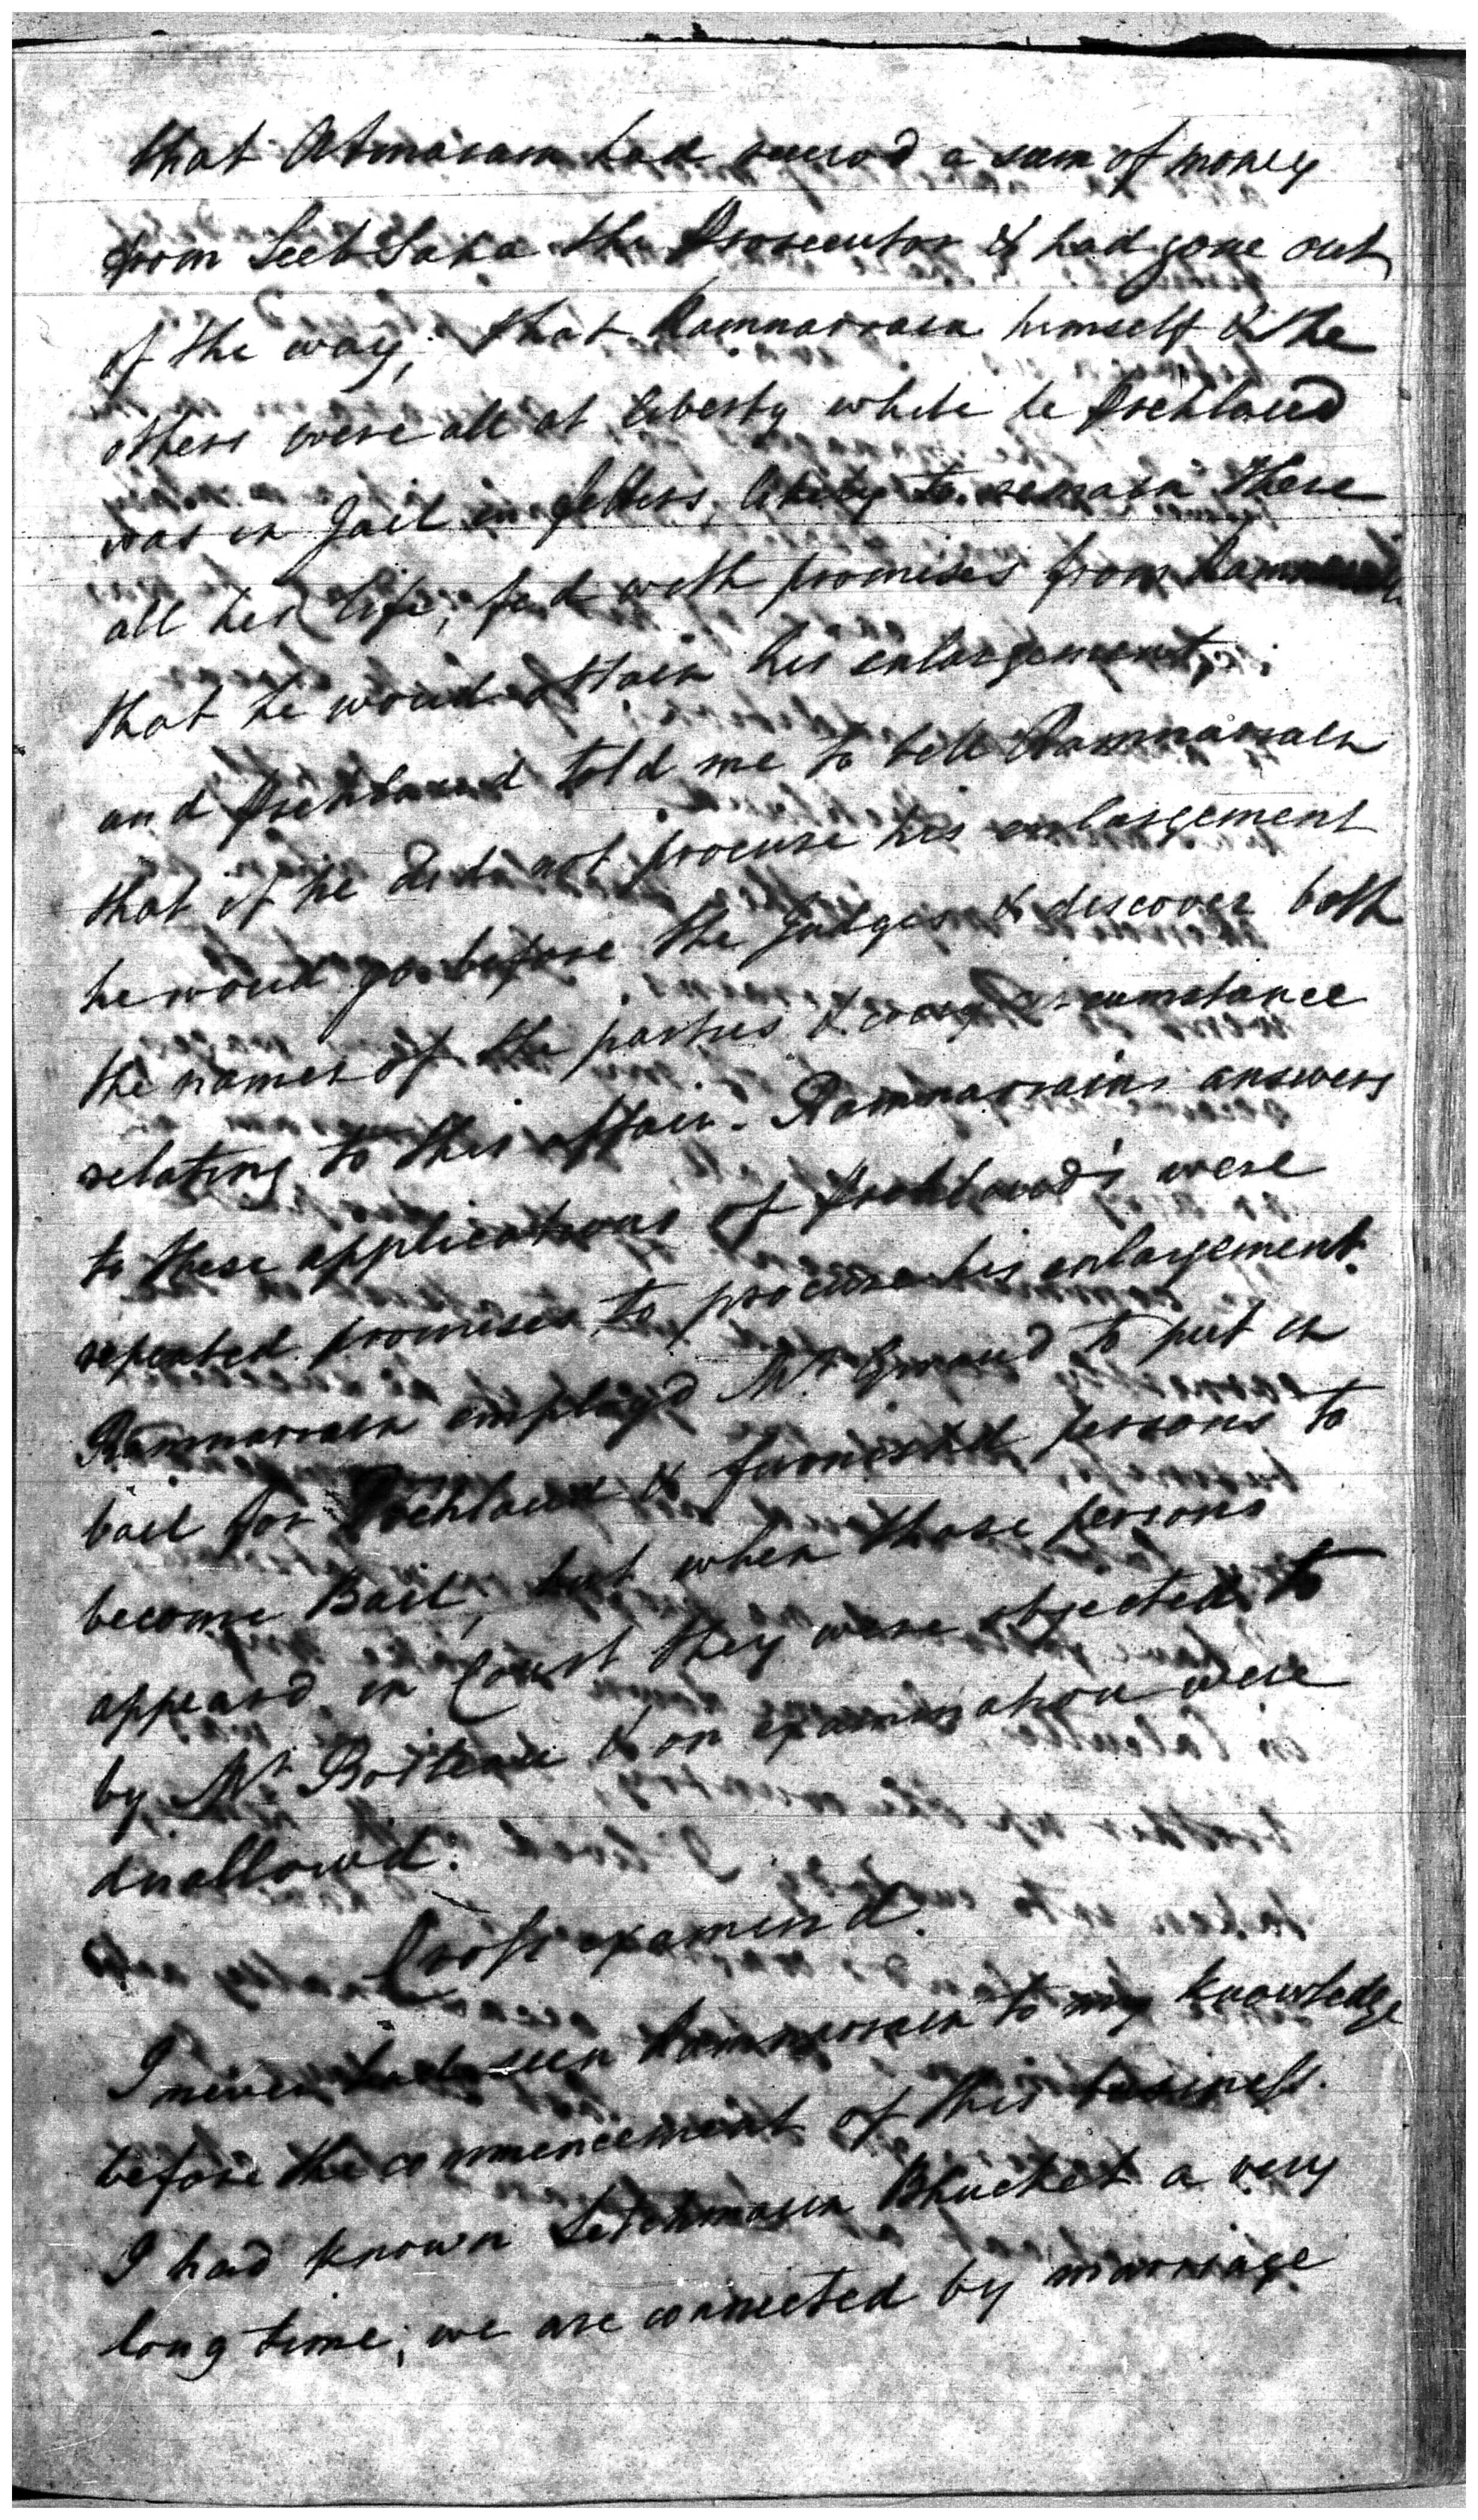 that Atmaram had receiv'd a sum of money
from Seeb Saha the Prosecutor & had gone out
of the way, that Ramnarrain himself & the
others were all at liberty while he Prehlaud
was in Jail in fetters, likely to remain there
all his life, fed with promises from
that he would attain his enlargement;
and Prehlaud told me to tell Ramnarrain
that if he did not procure his enlargement
he woud go before the Judges & discover both
the names of the parties & every circumstance
relating to this affair. Ramnarrain's answers
to these applications of Prehlaud's were
repeated promises to procure his enlargement.
Ramnarrain employ'd Mr. to put in
bail for Prehlaud & furnished persons to
become Bail, but when those persons
appear'd in Court they were objected to
by Mr. & on examination were
disallow'd.
Cross examin'd.
I never had seen Ramnarrain to my knowledge
before the commencement of this business.
I had known Letchmaun Bhucket a very
long time; we are connected by marriage